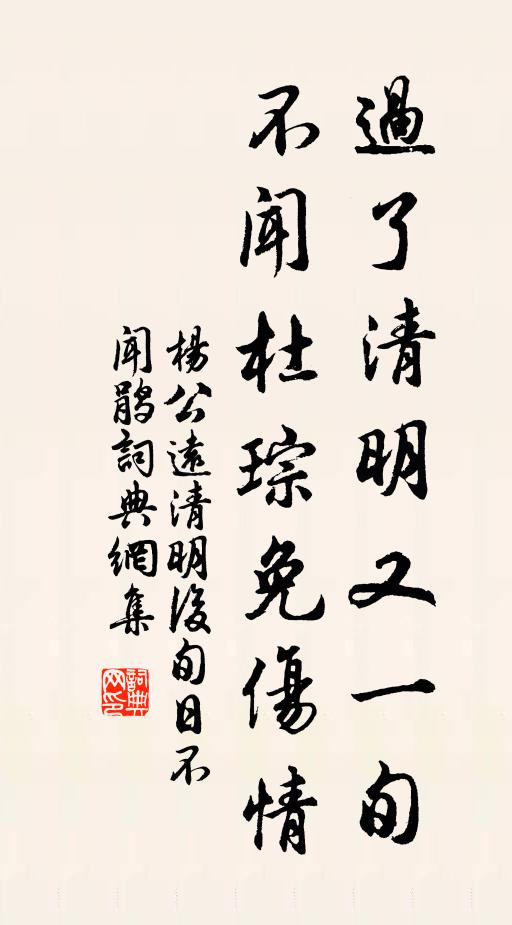 過了清明又一旬
不聞杜琮免傷情
楊公遠清明後旬日不
聞鵑詞典網集
詞典
网印